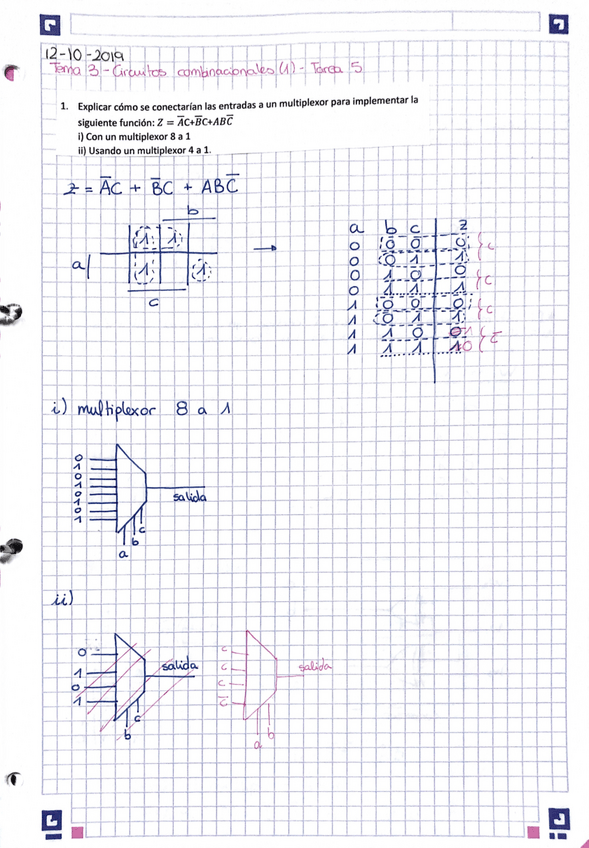 12-10-2019
Tema 3 - Circuitos combinacionales (1) - Tarea 5
1. Explicar cómo se conectarían las entradas a un multiplexor para implementar la
siguiente función: Z = A̅C+B̅C+ABC̅
i) Con un multiplexor 8 a 1
ii) Usando un multiplexor 4 a 1.
z = A̅C + B̅C + ABC̅
b
1 1
a 1 1
c
a b c z
0 0 0 0
0 0 1 1 } c
0 1 0 0
0 1 1 1 } c
1 0 0 0
1 0 1 1 } c
1 1 0 1
1 1 1 0 } c̅
i) multiplexor 8 a 1
0
1
0
1
0
1
0
1
salida
a b c
ii)
0
1
0
1
salida
b c
c
c
c
c̅
salida
a b